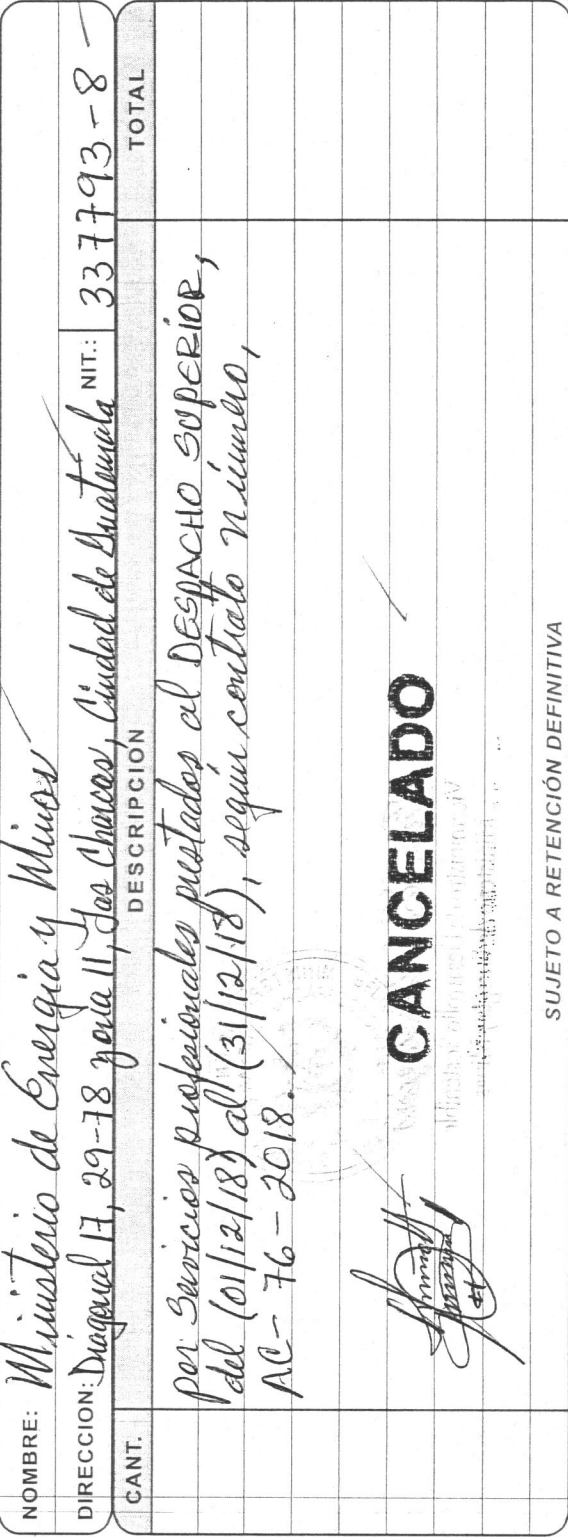 NOMBRE: Ministerio de Energía y Minas
DIRECCION: Diagonal 17, 29-78 zona 11, Las Charcas, Ciudad de Guatemala NIT.: 337793-8
CANT. DESCRIPCIÓN TOTAL
Por Servicios profesionales prestados al DESPACHO SUPERIOR,
del (01/12/18) al (31/12/18), según contrato número,
AC-76-2018.
CANCELADO
SUJETO A RETENCIÓN DEFINITIVA